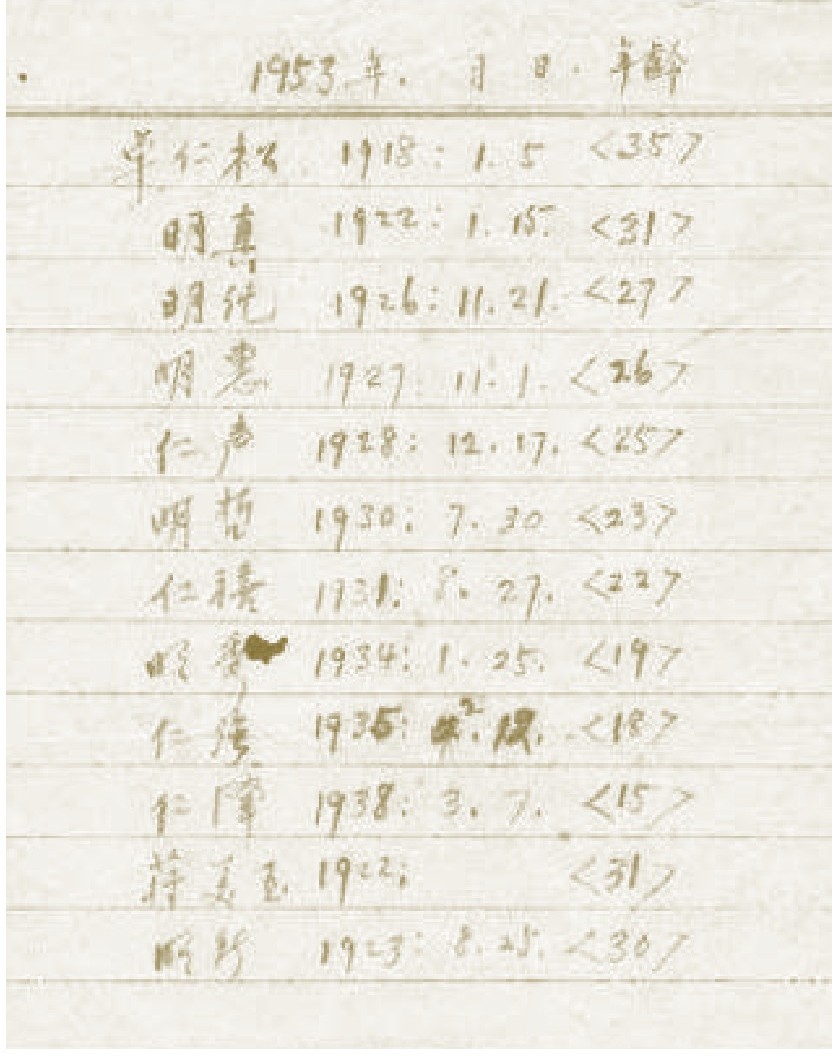 1953年. 月 日. 年齡
卓仁松 1918: 1. 5 <35>
明真 1922: 1. 15. <31>
明純 1926: 11. 21. <27>
明惠 1927: 11. 1. <26>
仁声 1928: 12. 17. <25>
明哲 1930: 7. 30 <23>
仁禧 1931: 8. 27. <22>
明 1934: 1. 25. <19>
仁 1935: 2. 12. <18>
仁 1938: 3. 7. <15>
蒋美玉 1922: <31>
明新 1923: 8. 25. <30>